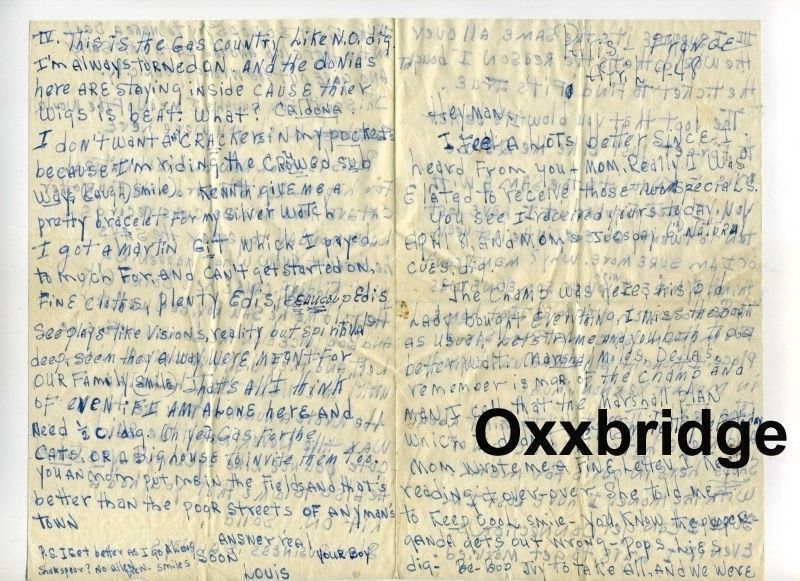 IV. This is the Gas COUNTRY Like N.O. dig.
I'm Always TURNED ON. ANd the donias
here ARE STAYING inside CAUSE thier
wigs is BEAT. What? Caldona
I don't want a CRACKERS in my pockets
because I'm riding the CROWED sub
way, (laugh) smile). KENNth give me a
pretty bracelet For my silver watch
I got a martin GIT. which I payed
to much For, ANd CAN'T get started ON,
FINE cloths, plenty Edis, BEAUCOUP Edis
See plays like Visions, reality but spiritual
deep, seem they always WERE MEANT for
OUR Family (smile). That's All I think
OF EVEN iF I AM ALONE here ANd
Need ½ C. dig. Oh yea Gas For the
CATS. OR A Big house to invite them too.
you ANd mom put me in the Fields ANd that's
better than the pooR STREETS OF ANYMANS
TOWN
ANSWER real
SOON YOUR BOY
LOUIS
P.S. I Get better as I go Along
Shakspear? No Allen. smiles
Paris FRANCE
Apr. 9-48
Hey MAN,
I Feel A lots better SINCE I
heard From you + MOM. Really I was
Elated to receive those two specials.
You see I received yours today, Nov
APRil 8, ANd MOM's Tuesday 6. NATURAL
CUES. dig.
The Champ was here, his old
Lady bought Everything, I miss the BOAT
AS USUAL.
better wait. Marshal Miles, Della's
remember is MGR. OF The Champ ANd
MAN I call that the Marshall PLAN
which
MOM wrote me a FINE Letter. I Keep
reading + over-over. She told me
to Keep COOL, smile - you KNOW the
GANdA gets out wrong - Pops lies
dig - BE-Bop Try to TAKE All. ANd WE WERE
Oxxbridge